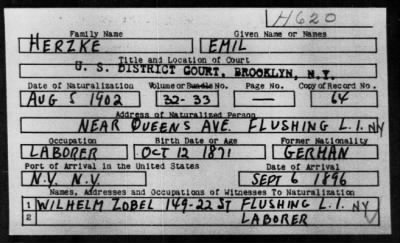 H620
Family Name Given Name or Names
HERZKE EMIL
Title and Location of Court
U. S. DISTRICT COURT, BROOKLYN, N.Y.
Date of Naturalization Volume or Bundle No. Page No. Copy of Record No.
AUG 5 1902 32-33 — 64
Address of Naturalized Person
NEAR QUEENS AVE. FLUSHING L.I. NY
Occupation Birth Date or Age Former Nationality
LABORER OCT 12 1871 GERMAN
Port of Arrival in the United States Date of Arrival
N.Y. N.Y SEPT 6 1896
Names, Addresses and Occupations of Witnesses To Naturalization
1 WILHELM ZOBEL 149-22 ST FLUSHING L.I. NY
2 LABORER